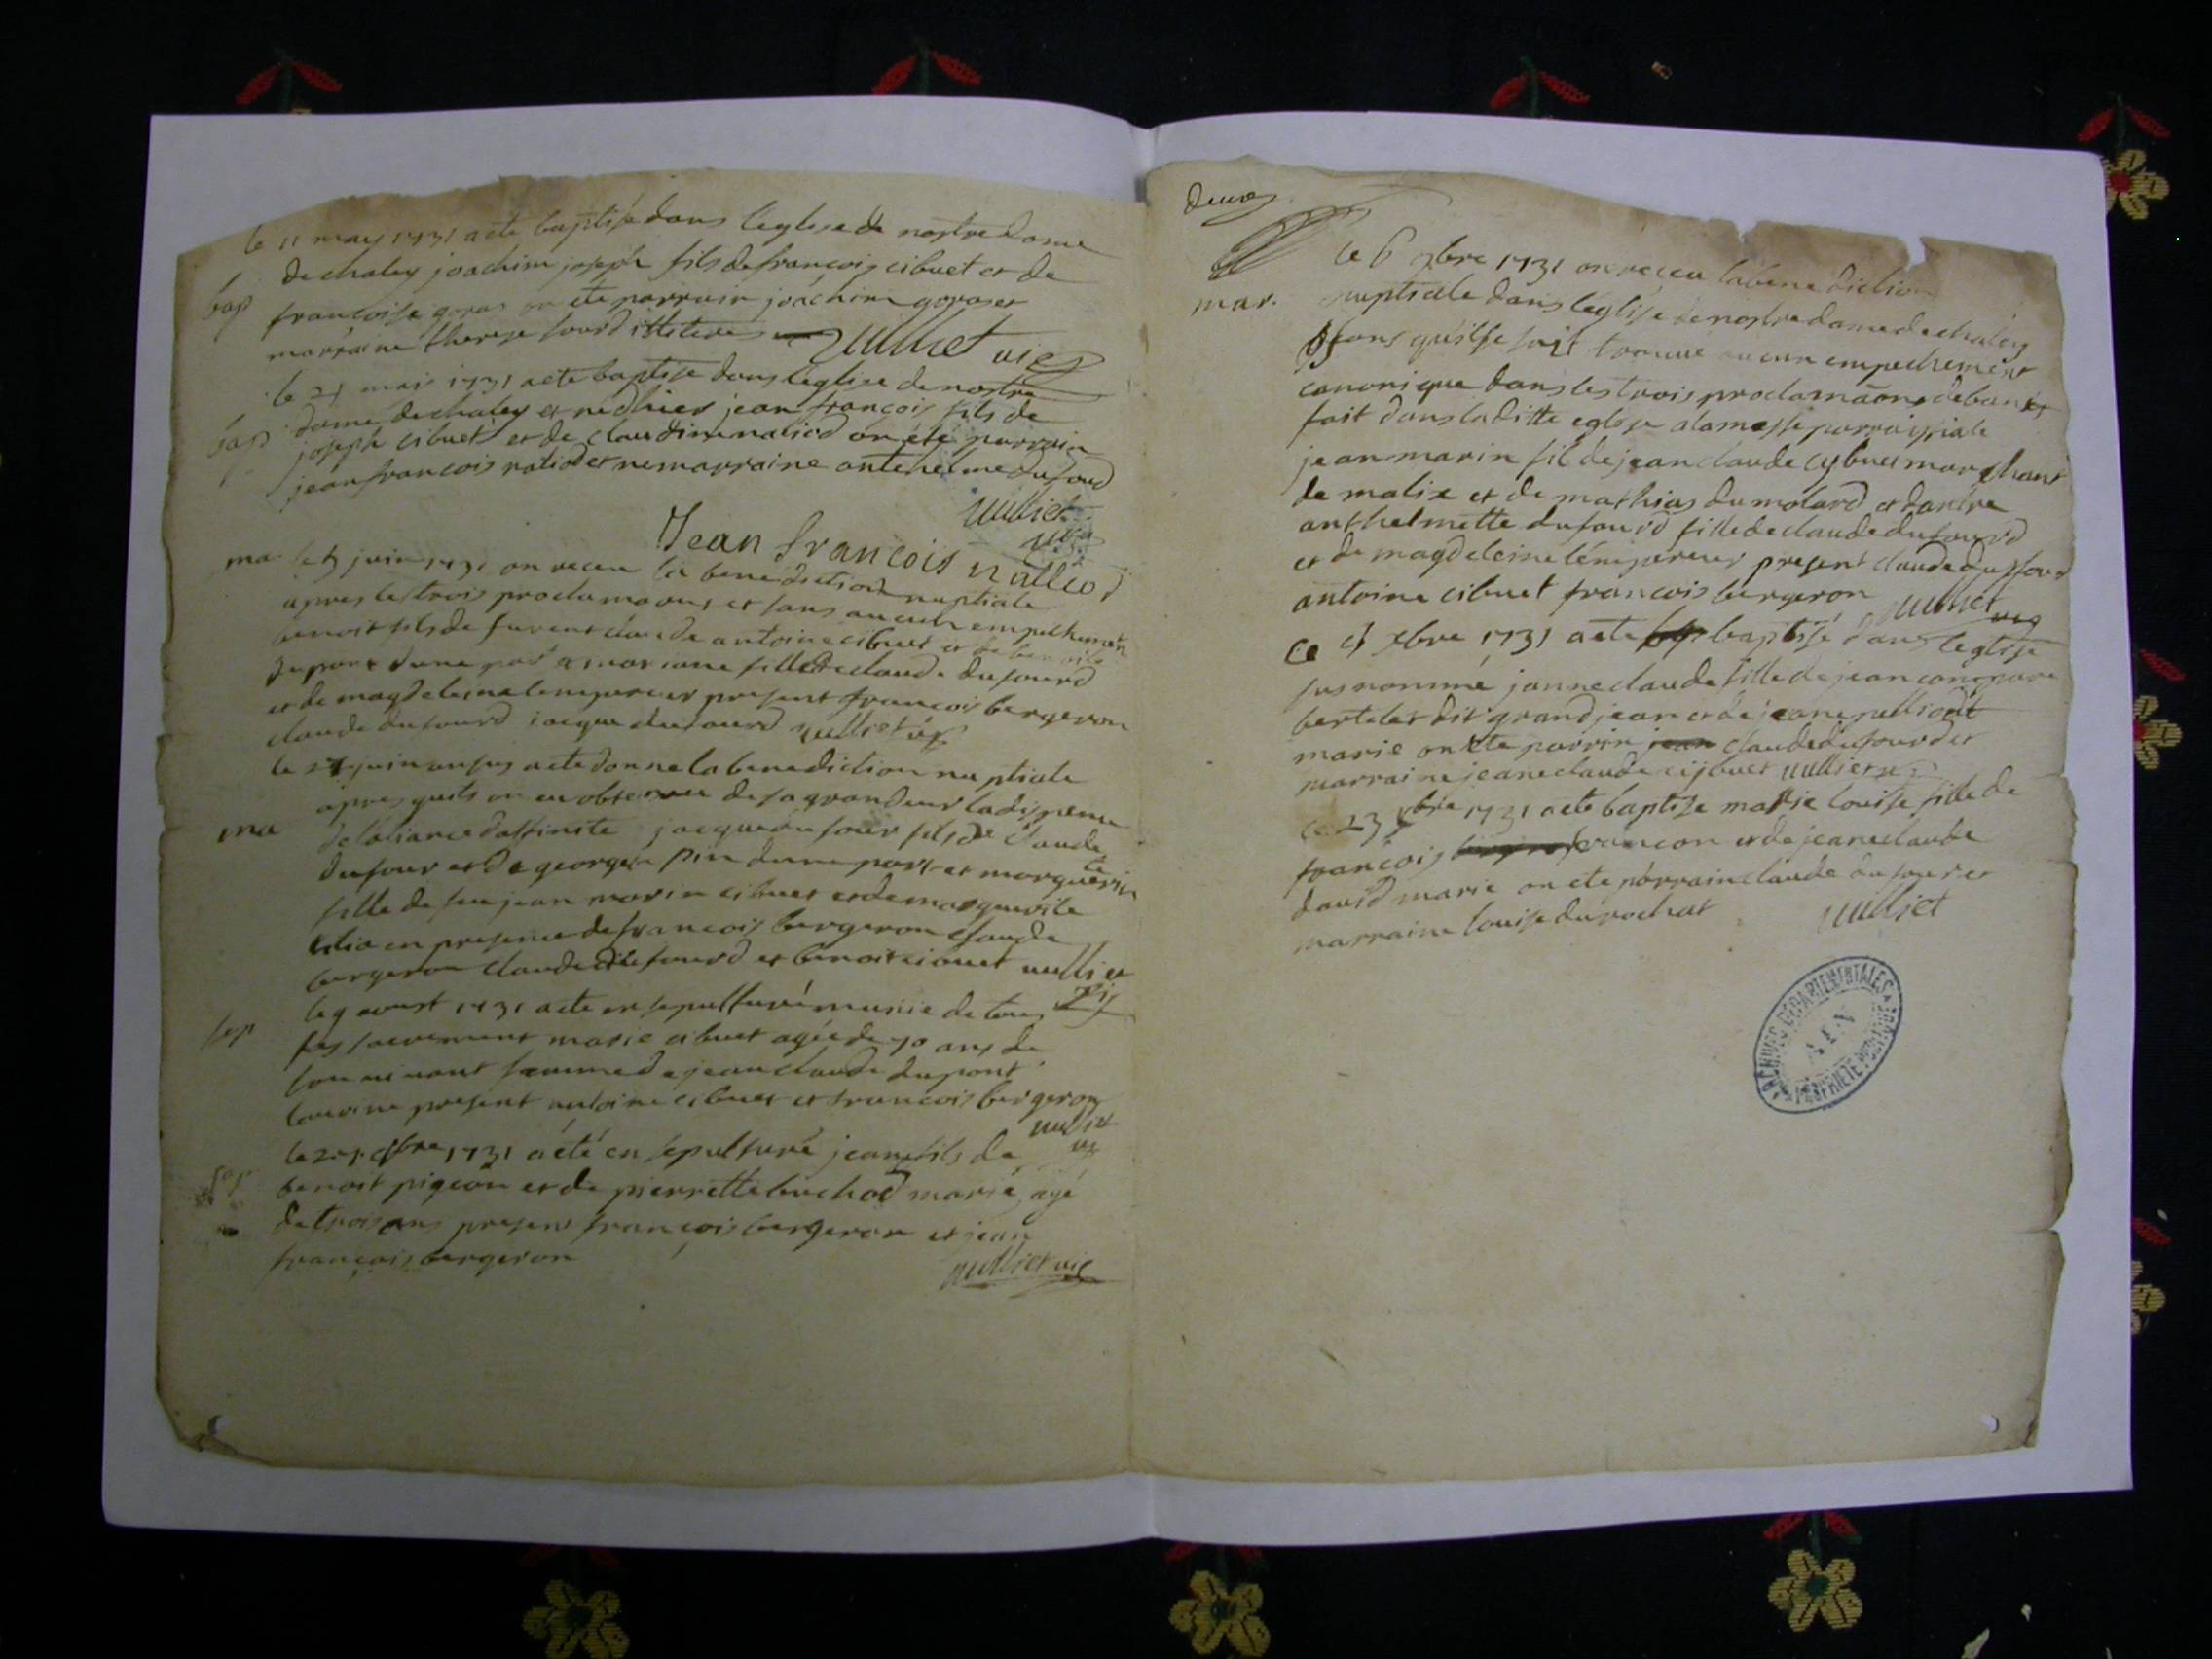 le 11 may 1731 a ete baptisé dans l'eglise de nostre dame
de chaley joachim joseph fils de françois cibuet et de
bap
francoise goras on ete parrain joachim goras et
marraine therese fourd illiteres nulliet vic
le 21 mais 1731 a ete baptise dans l'eglise de nostre
dame de chaley jean françois fils de
bap
joseph cibuet et de claudine naliod on été parrain
jean francois naliod et ne marraine anthelme dufourd
nulliet
vic
Jean francois nalliod
ma
le juin 1731 on receu la benediction nuptiale
apres les trois proclamaons et sans aucun empechement
benoit fils de claude antoine cibuet et de benoite
dupont dune part et mariane fille de claude dufourd
et de magdeleine lempereur present françois bergeron
claude dufourd iacque dufourd nulliet vic
le juin an sus a ete donne la benediction nuptiale
apres quils on eu obtenue de sa grandeur la dispense
ma
de laliance daffinite jacque dufour fils de claude
dufour et de george pin dune part et marguerite
fille de feu jean marin cibuet et de marguerite
en presence de francois bergeron claude
bergeron claude dufourd et benoit cibuet nulliet
vic
sep
le 9 aoust 1731 a ete en sepulturé munie de tous
ses sacrement marie cibuet agée de 70 ans de
son vivant femme de jean claude dupont
present antoine cibuet et francois bergeron
nulliet
vic
le 1731 a été en sepulturé jean fils de
sep
benoit pigeon et de pierrette buchod marié, agé
de trois ans present françois bergeron et jean
françois bergeron
nulliet vic
deux
le 6 9bre 1731 on receu la benediction
mar.
nuptiale dans l'eglise de nostre dame de chaley
sans quil se soit trouvé aucun empechement
canonique dans les trois proclamaons de bans
fait dans laditte eglise a la messe parroissiale
jean marin fil de jean claude cybuet marchant
de malix et de mathias du molard et dautre
anthelmette dufourd fille de claude dufourd
et de magdeleine lempereur present claude dufour
antoine cibuet francois bergeron nulliet
vic
ce xbre 1731 a ete baptisé dans leglise
sus nommé janne claude fille de jean
bertelet dit grand jean et de jeane nulliod
marie on ete parrin jean claude dufourd et
marraine jeane claude cijbuet nulliet vic
ce 23 xbre 1731 a ete baptise marie louise fille de
françois francon et de jeane claude
david marie on ete parrain claude dufour et
marraine louise durochat nulliet
ARCHIVES DÉPARTEMENTALES
AIN
PROPRIÉTÉ PUBLIQUE